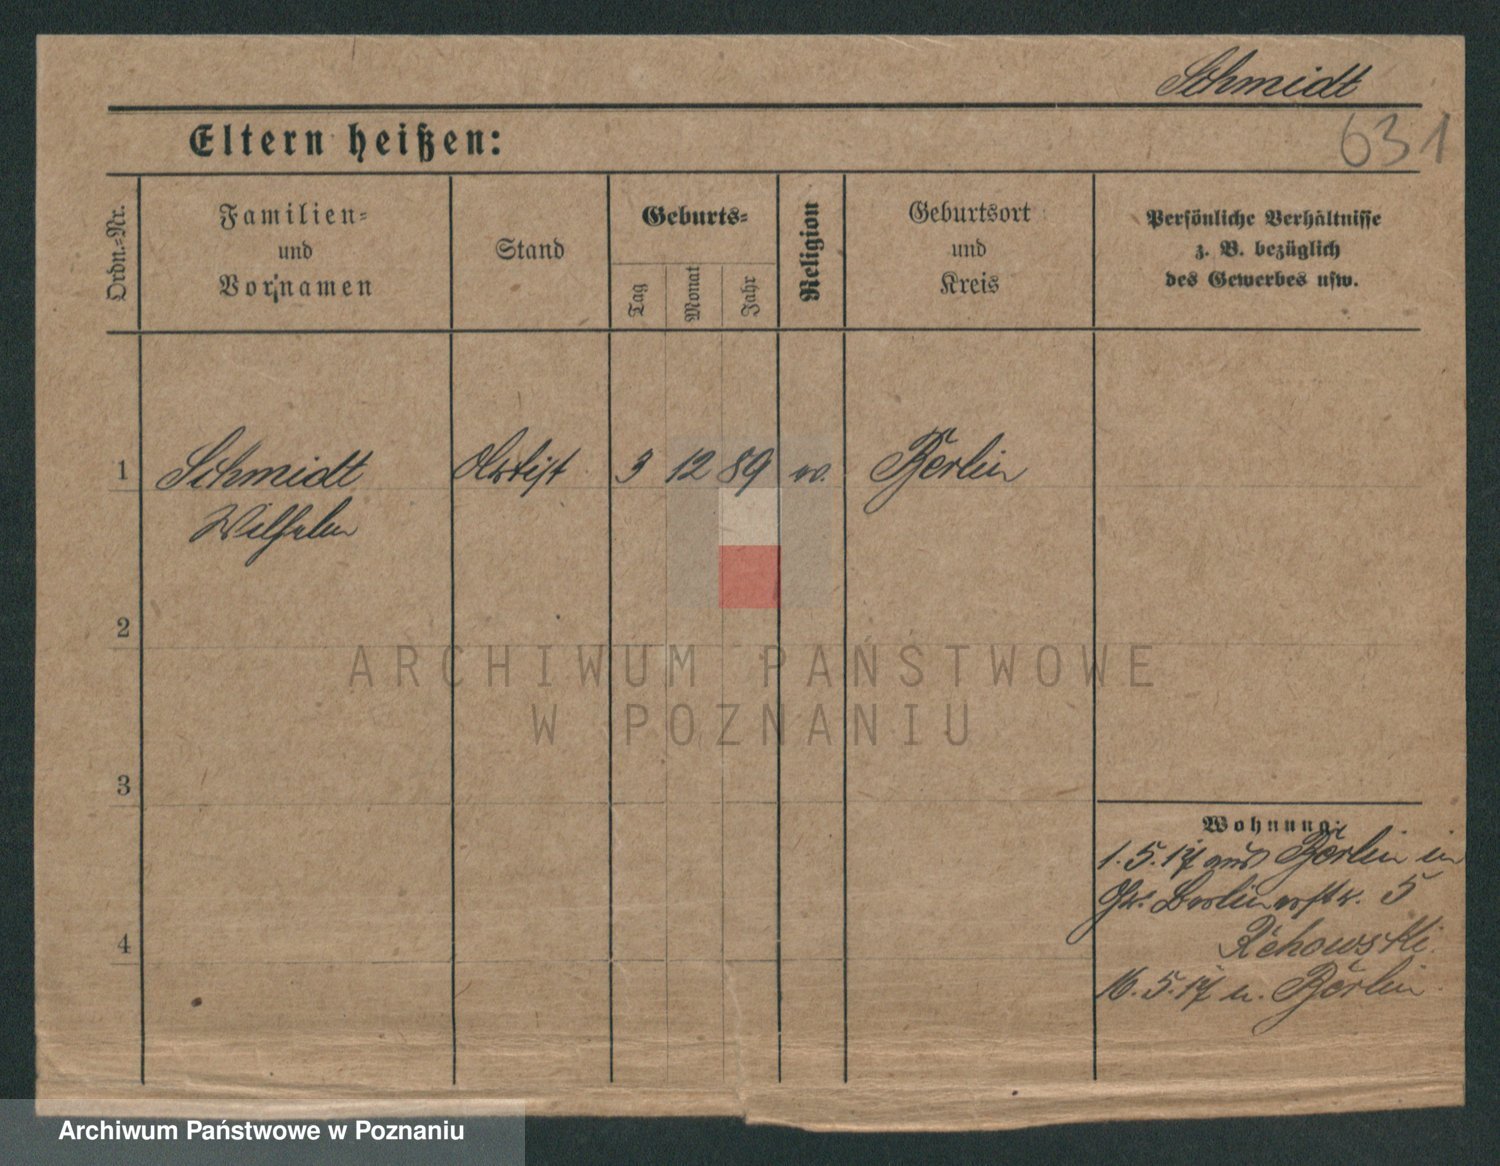 Schmidt
631
Eltern heißen:
Ordn.=Nr.
Familien=
und
Vornamen
Stand
Geburts=
Tag
Monat
Jahr
Religion
Geburtsort
und
Kreis
Persönliche Verhältnisse
z. B. bezüglich
des Gewerbes usw.
1 Schmidt Artist 3 12 89 Berlin
Wilhelm
2
3
4
Wohnung:
1.5.17 aus Berlin in
Berlinerstr. 5
16.5.17 n. Berlin.
ARCHIWUM PAŃSTWOWE
W POZNANIU
Archiwum Państwowe w Poznaniu